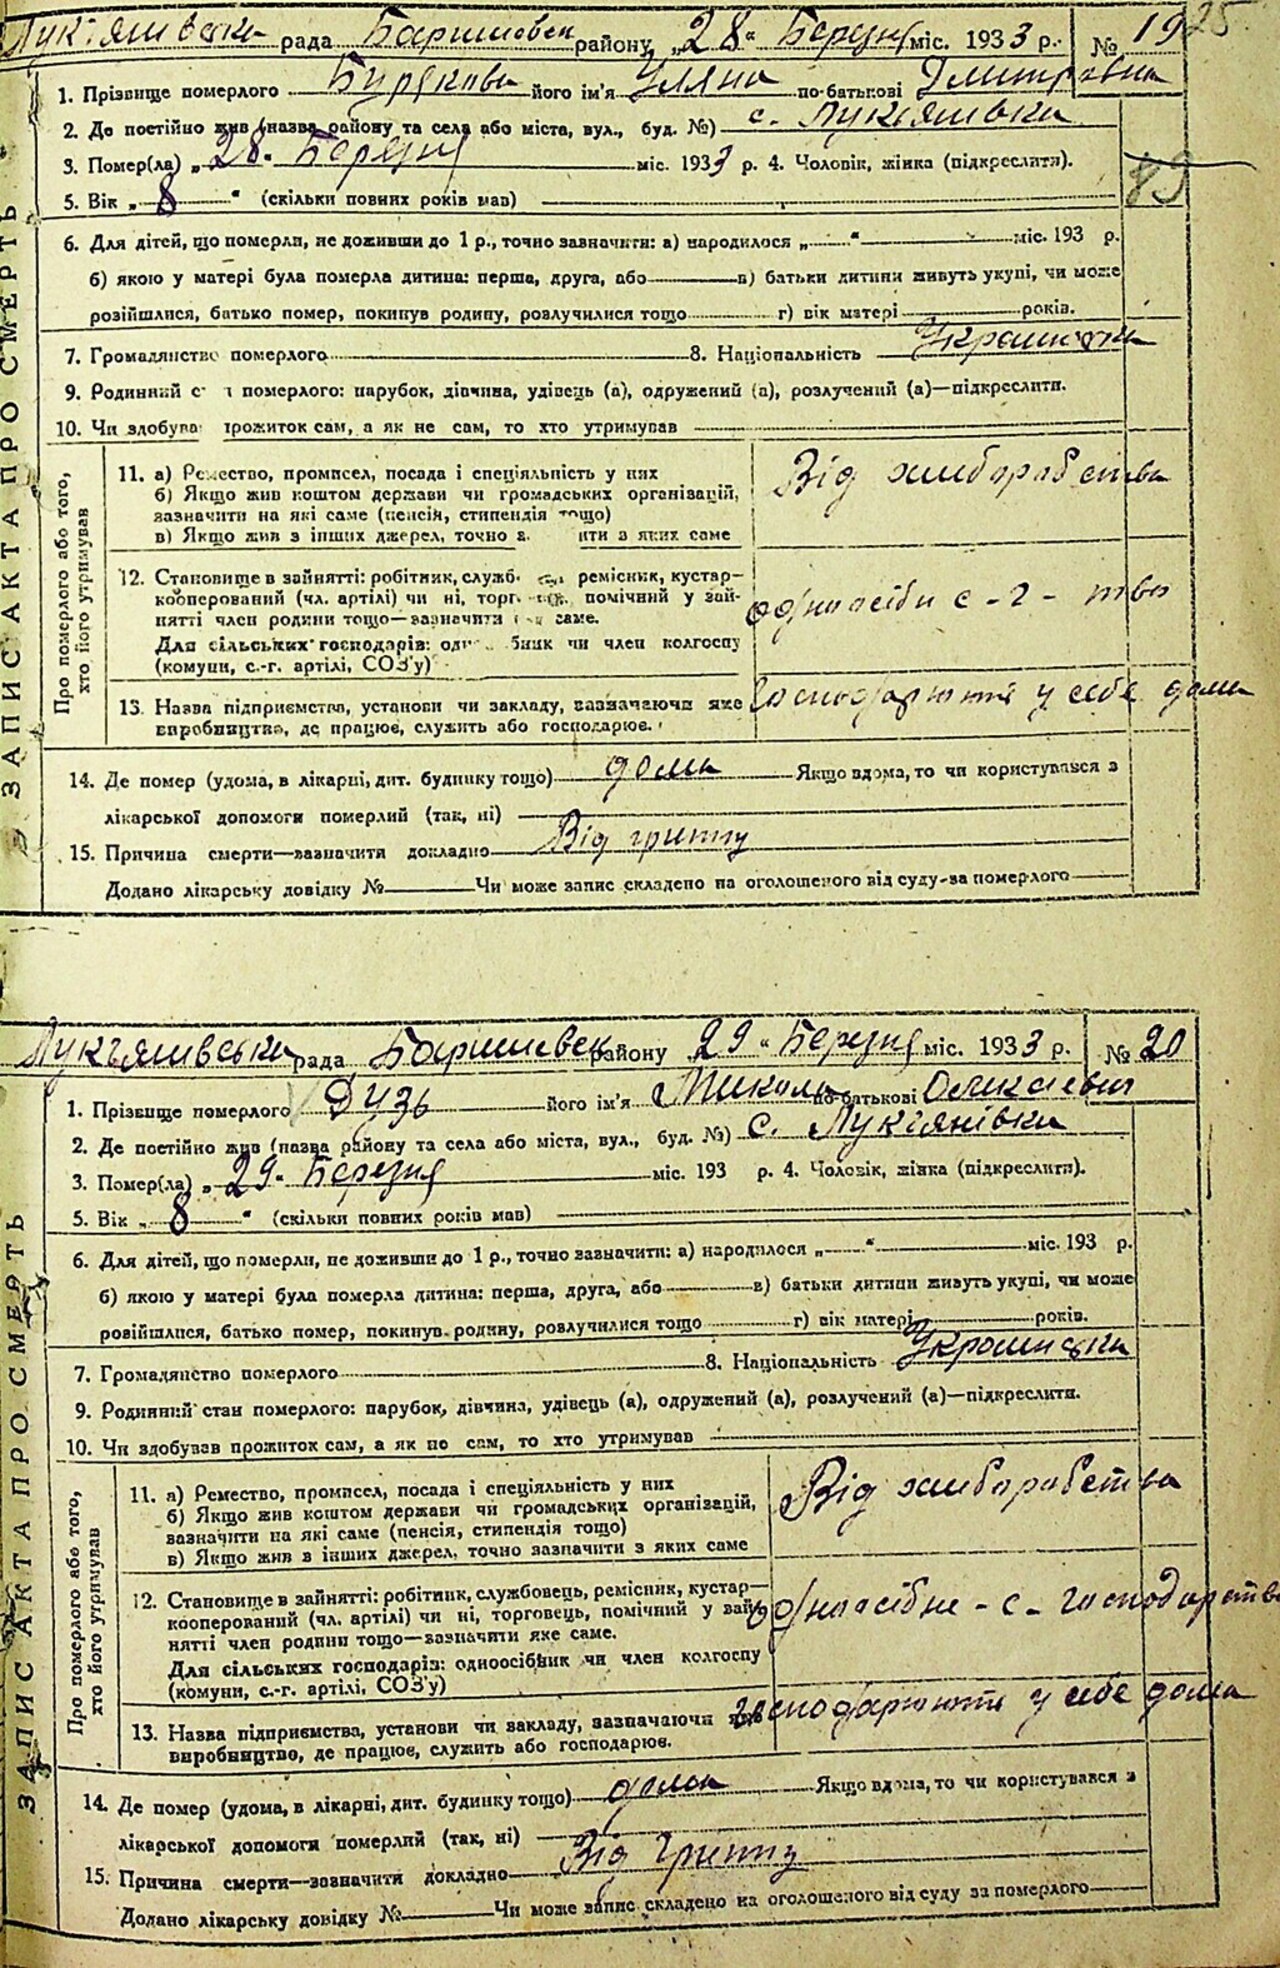 Лук'янівська рада Баришівськ району „28“ Березня міс. 1933 р. № 19 25
1. Прізвище померлого Бурякова його ім'я Уляна по-батькові Дмитрівна
2. Де постійно жив (назва району та села або міста, вул., буд. №) с. Лукьянівка
3. Помер(ла) „28“ Березня міс. 1933 р. 4. Чоловік, жінка (підкреслити).
5. Вік „8“ (скільки повних років мав)
6. Для дітей, що померли, не доживши до 1 р., точно зазначити: а) народилося „ “ міс. 193 р.
б) якою у матері була померла дитина: перша, друга, або в) батьки дитини живуть укупі, чи може
розійшлися, батько помер, покинув родину, розлучилися тощо г) вік матері років.
7. Громадянство померлого 8. Національність Українська
9. Родинний с н померлого: парубок, дівчина, удівець (а), одружений (а), розлучений (а)—підкреслити.
10. Чи здобува прожиток сам, а як не сам, то хто утримував
ЗАПИС АКТА ПРО СМЕРТЬ
Про померлого або того, хто його утримував
11. а) Ремество, промисел, посада і спеціяльність у них
б) Якщо жив коштом держави чи громадських організацій,
зазначити на які саме (пенсія, стипендія тощо)
в) Якщо жив з інших джерел, точно з ити з яких саме
Від хліборобства
12. Становище в зайнятті: робітник, служб ремісник, кустар—
кооперований (чл. артілі) чи ні, торг помічний у зай-
нятті член родини тощо—зазначити саме.
Для сільських господарів: одно бник чи член колгоспу
(комуни, с.-г. артілі, СОЗ'у)
одноосібн с-г-тво
13. Назва підприємства, установи чи закладу, зазначаючи яке
виробництво, де працює, служить або господарює.
Господарюють у себе дома
14. Де помер (удома, в лікарні, дит. будинку тощо) дома Якщо вдома, то чи користувався з
лікарської допомоги померлий (так, ні)
15. Причина смерти—зазначити докладно Від гриппу
Додано лікарську довідку № Чи може запис складено на оголошеного від суду за померлого
Лукъянивська рада Баришевськ району „29“ Березня міс. 1933 р. № 20
1. Прізвище померлого Дузь його ім'я Микола по-батькові Олексієвич
2. Де постійно жив (назва району та села або міста, вул., буд. №) с. Лукьянівка
3. Помер(ла) „29“ Березня міс. 193 р. 4. Чоловік, жінка (підкреслити).
5. Вік „8“ (скільки повних років мав)
6. Для дітей, що померли, не доживши до 1 р., точно зазначити: а) народилося „ “ міс. 193 р.
б) якою у матері була померла дитина: перша, друга, або в) батьки дитини живуть укупі, чи може
розійшлися, батько помер, покинув родину, розлучилися тощо г) вік матері років.
7. Громадянство померлого 8. Національність Українська
9. Родинний стан померлого: парубок, дівчина, удівець (а), одружений (а), розлучений (а)—підкреслити.
10. Чи здобував прожиток сам, а як не сам, то хто утримував
ЗАПИС АКТА ПРО СМЕРТЬ
Про померлого або того, хто його утримував
11. а) Ремество, промисел, посада і спеціяльність у них
б) Якщо жив коштом держави чи громадських організацій,
зазначити на які саме (пенсія, стипендія тощо)
в) Якщо жив з інших джерел, точно зазначити з яких саме
Від хліборобства
12. Становище в зайнятті: робітник, службовець, ремісник, кустар—
кооперований (чл. артілі) чи ні, торговець, помічний у зай-
нятті член родини тощо—зазначити яке саме.
Для сільських господарів: одноосібник чи член колгоспу
(комуни, с.-г. артілі, СОЗ'у)
одноосібне-с-господарство
13. Назва підприємства, установи чи закладу, зазначаючи яке
виробництво, де працює, служить або господарює.
господарюють у себе дома
14. Де помер (удома, в лікарні, дит. будинку тощо) дома Якщо вдома, то чи користувався з
лікарської допомоги померлий (так, ні)
15. Причина смерти—зазначити докладно Від Гриппу
Додано лікарську довідку № Чи може запис складено на оголошеного від суду за померлого